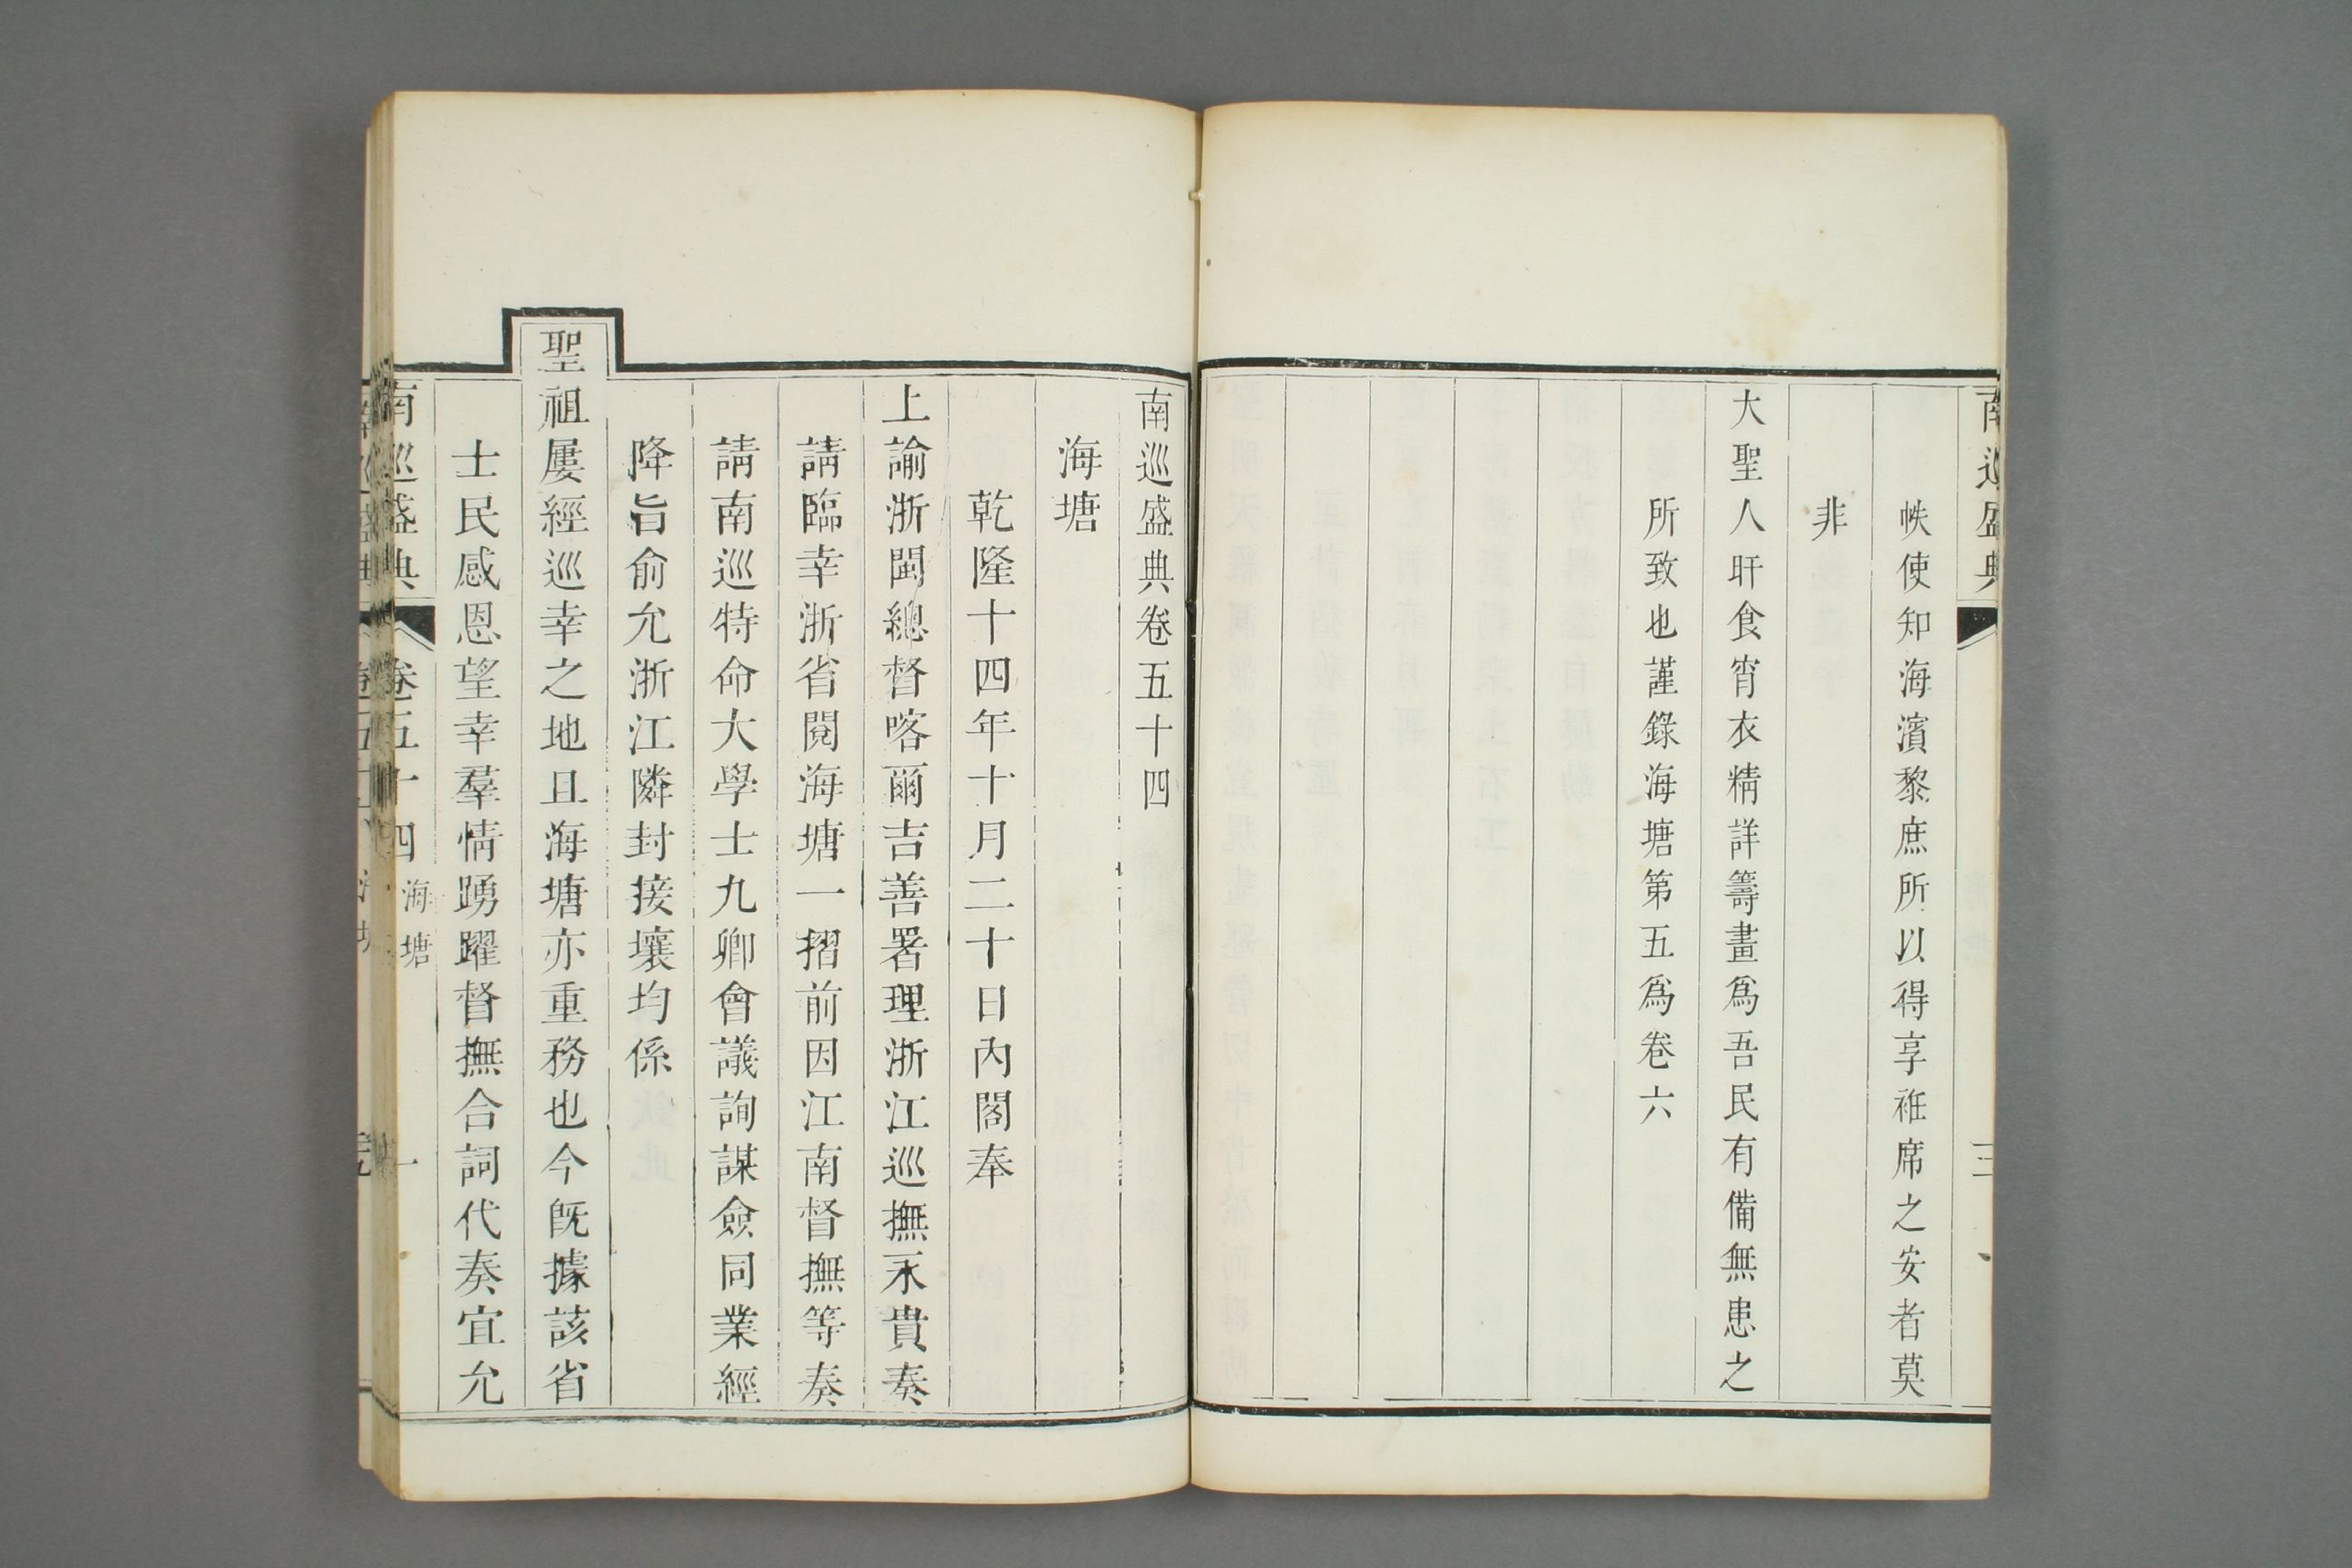 帙使知海濱黎庶所以得享袵席之安者莫
非
大聖人旰食宵衣精詳籌畫爲吾民有備無患之
所致也謹錄海塘第五爲卷六
南巡盛典卷五十四
海塘
乾隆十四年十月二十日內閣奉
上諭浙閩總督喀爾吉善署理浙江巡撫永貴奏
請臨幸浙省閱海塘一摺前因江南督撫等奏
請南巡特命大學士九卿會議詢謀僉同業經
降旨俞允浙江隣封接壤均係
聖祖屢經巡幸之地且海塘亦重務也今旣據該省
士民感恩望幸羣情踴躍督撫合詞代奏宜允
南巡盛典 卷五十四 海塘 一